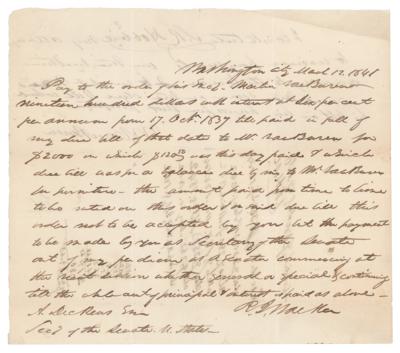 Washington City March 12. 1841
Pay to the order of his Excy. Martin Van Buren
nineteen hundred dollars with interest at six per cent
per annum from 17. Oct. 1837 till paid in full of
my due bill of that date to Mr. Van Buren for
$2000 on which $ was this day paid & which
due bill was for a balance due by me to Mr. Van Buren
for furniture - the amount paid from time to time
to be noted on this order & on said due bill this
order not to be accepted by you but the payment
to be made by you as Secretary of the Senate
out of my per diem as a Senator commencing at
the next session whether general or special & continuing
till the whole amt of principal & interest is paid as above -
A. Dickens Esq R J Walker
Secy of the Senate U. States